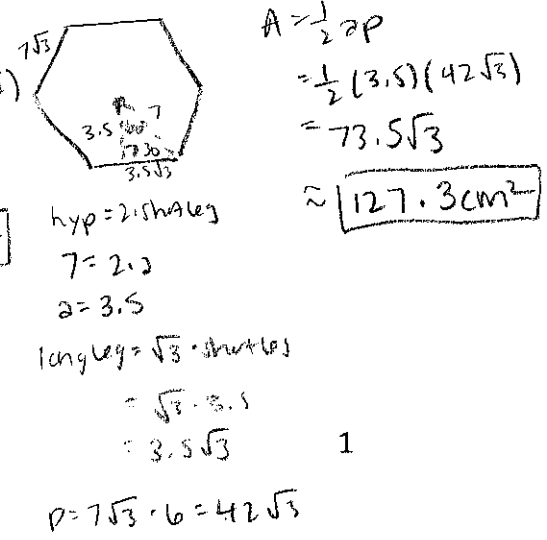 7√3
)
7
3.5 60
30
3.5√3
A = 1/2 ap
= 1/2 (3.5)(42√3)
= 73.5√3
≈ 127.3cm²
hyp = 2·short leg
7 = 2·a
a = 3.5
long leg = √3 · short leg
= √3 · 3.5
= 3.5√3
1
p = 7√3 · 6 = 42√3